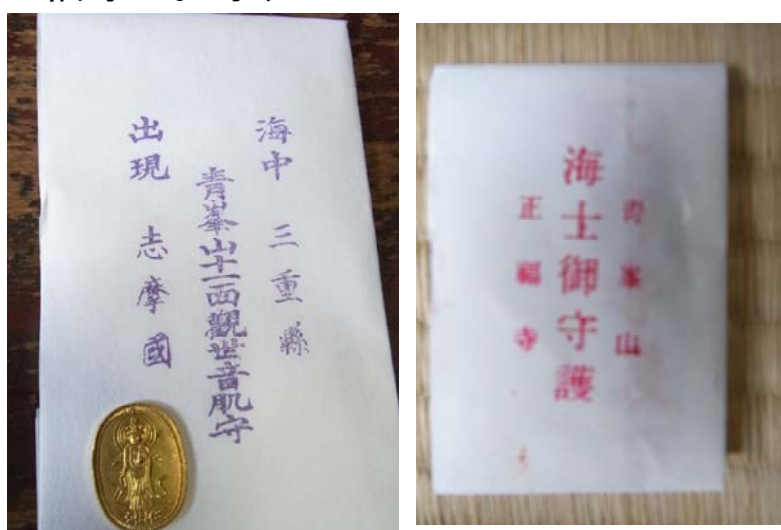 海中 三重縣
青峯山十一面觀世音肌守
出現 志摩國
青峯山
海士御守護
正福寺